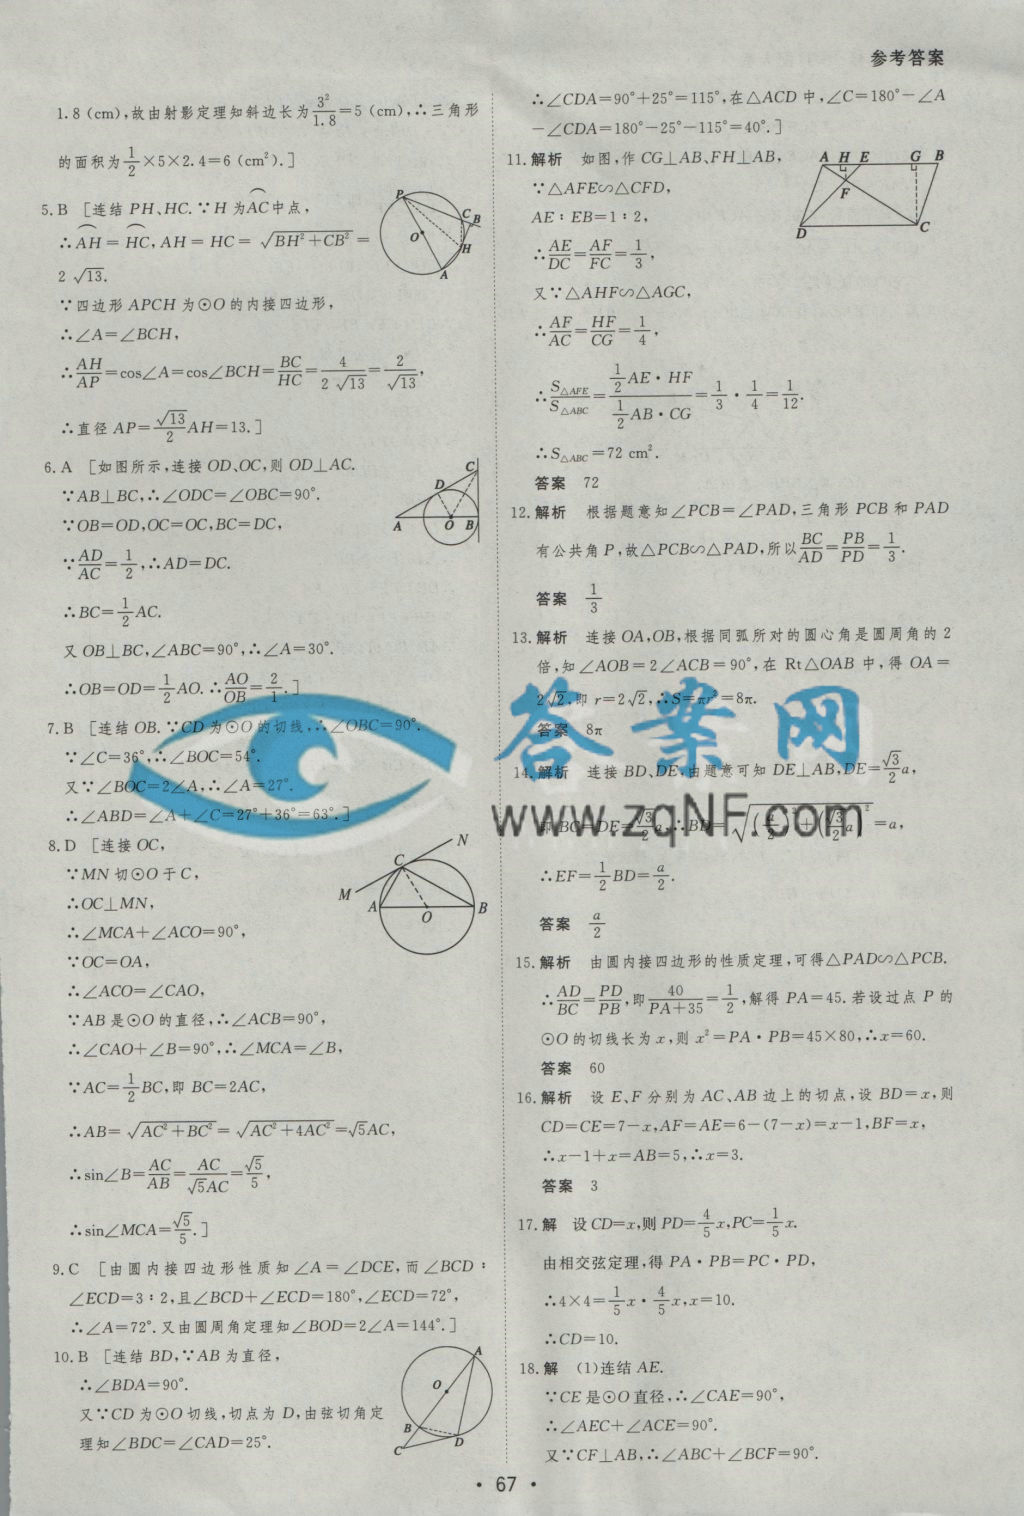 参考答案
1.8 (cm),故由射影定理知斜边长为3²/1.8=5 (cm),∴三角形
的面积为1/2×5×2.4=6 (cm²).]
5.B [连结 PH、HC.∵H 为AC中点,
∴AH=HC,AH=HC=√(BH²+CB²)=
2√13.
∵四边形 APCH 为⊙O的内接四边形,
∴∠A=∠BCH,
∴AH/AP=cos∠A=cos∠BCH=BC/HC=4/(2√13)=2/√13,
∴直径 AP=(√13/2)AH=13.]
P C B O H A
6.A [如图所示,连接 OD、OC,则 OD⊥AC.
∵AB⊥BC,∴∠ODC=∠OBC=90°.
∵OB=OD,OC=OC,BC=DC,
∵AD/AC=1/2,∴AD=DC.
∴BC=1/2AC.
又 OB⊥BC,∠ABC=90°,∴∠A=30°.
∴OB=OD=1/2AO.∴AO/OB=2/1.]
C D A O B
7.B [连结 OB.∵CD 为⊙O 的切线,∴∠OBC=90°.
∵∠C=36°,∴∠BOC=54°.
又∵∠BOC=2∠A,∴∠A=27°.
∴∠ABD=∠A+∠C=27°+36°=63°.]
8.D [连接 OC,
∵MN 切⊙O 于 C,
∴OC⊥MN,
∴∠MCA+∠ACO=90°,
∵OC=OA,
∴∠ACO=∠CAO,
∵AB 是⊙O 的直径,∴∠ACB=90°,
∴∠CAO+∠B=90°,∴∠MCA=∠B,
∵AC=1/2BC,即 BC=2AC,
∴AB=√(AC²+BC²)=√(AC²+4AC²)=√5AC,
∴sin∠B=AC/AB=AC/(√5AC)=√5/5,
∴sin∠MCA=√5/5.]
N C M A O B
9.C [由圆内接四边形性质知∠A=∠DCE,而∠BCD:
∠ECD=3:2,且∠BCD+∠ECD=180°,∠ECD=72°,
∴∠A=72°.又由圆周角定理知∠BOD=2∠A=144°.]
10.B [连结 BD,∵AB 为直径,
∴∠BDA=90°.
又∵CD 为⊙O 切线,切点为 D,由弦切角定
理知∠BDC=∠CAD=25°.
A O B C D
∴∠CDA=90°+25°=115°,在△ACD 中,∠C=180°-∠A
-∠CDA=180°-25°-115°=40°.]
11.解析 如图,作 CG⊥AB,FH⊥AB,
∵△AFE∽△CFD,
AE:EB=1:2,
∴AE/DC=AF/FC=1/3,
又∵△AHF∽△AGC,
∴AF/AC=HF/CG=1/4,
∴S△AFE/S△ABC=(1/2AE·HF)/(1/2AB·CG)=1/3·1/4=1/12.
∴S△ABC=72 cm².
答案 72
A H E G B F D C
12.解析 根据题意知∠PCB=∠PAD,三角形 PCB 和 PAD
有公共角 P,故△PCB∽△PAD,所以BC/AD=PB/PD=1/3.
答案 1/3
13.解析 连接 OA,OB,根据同弧所对的圆心角是圆周角的 2
倍,知∠AOB=2∠ACB=90°,在 Rt△OAB 中,得 OA=
2√2,即 r=2√2,∴S=πr²=8π.
答案 8π
14.解析 连接 BD、DE,由题意可知 DE⊥AB,DE=(√3/2)a,
即 BC=DE=(√3/2)a,∴BD=√((a/2)²+((√3/2)a)²)=a,
∴EF=1/2BD=a/2.
答案 a/2
15.解析 由圆内接四边形的性质定理,可得△PAD∽△PCB.
∴AD/BC=PD/PB,即40/(PA+35)=1/2,解得 PA=45.若设过点 P 的
⊙O的切线长为 x,则 x²=PA·PB=45×80,∴x=60.
答案 60
16.解析 设 E、F 分别为 AC、AB 边上的切点,设 BD=x,则
CD=CE=7-x,AF=AE=6-(7-x)=x-1,BF=x,
∴x-1+x=AB=5,∴x=3.
答案 3
17.解 设 CD=x,则 PD=4/5x,PC=1/5x.
由相交弦定理,得 PA·PB=PC·PD,
∴4×4=1/5x·4/5x,x=10.
∴CD=10.
18.解 (1)连结 AE.
∵CE 是⊙O直径,∴∠CAE=90°,
∴∠AEC+∠ACE=90°.
又∵CF⊥AB,∴∠ABC+∠BCF=90°.
答案网
www.zqNF.com
·67·